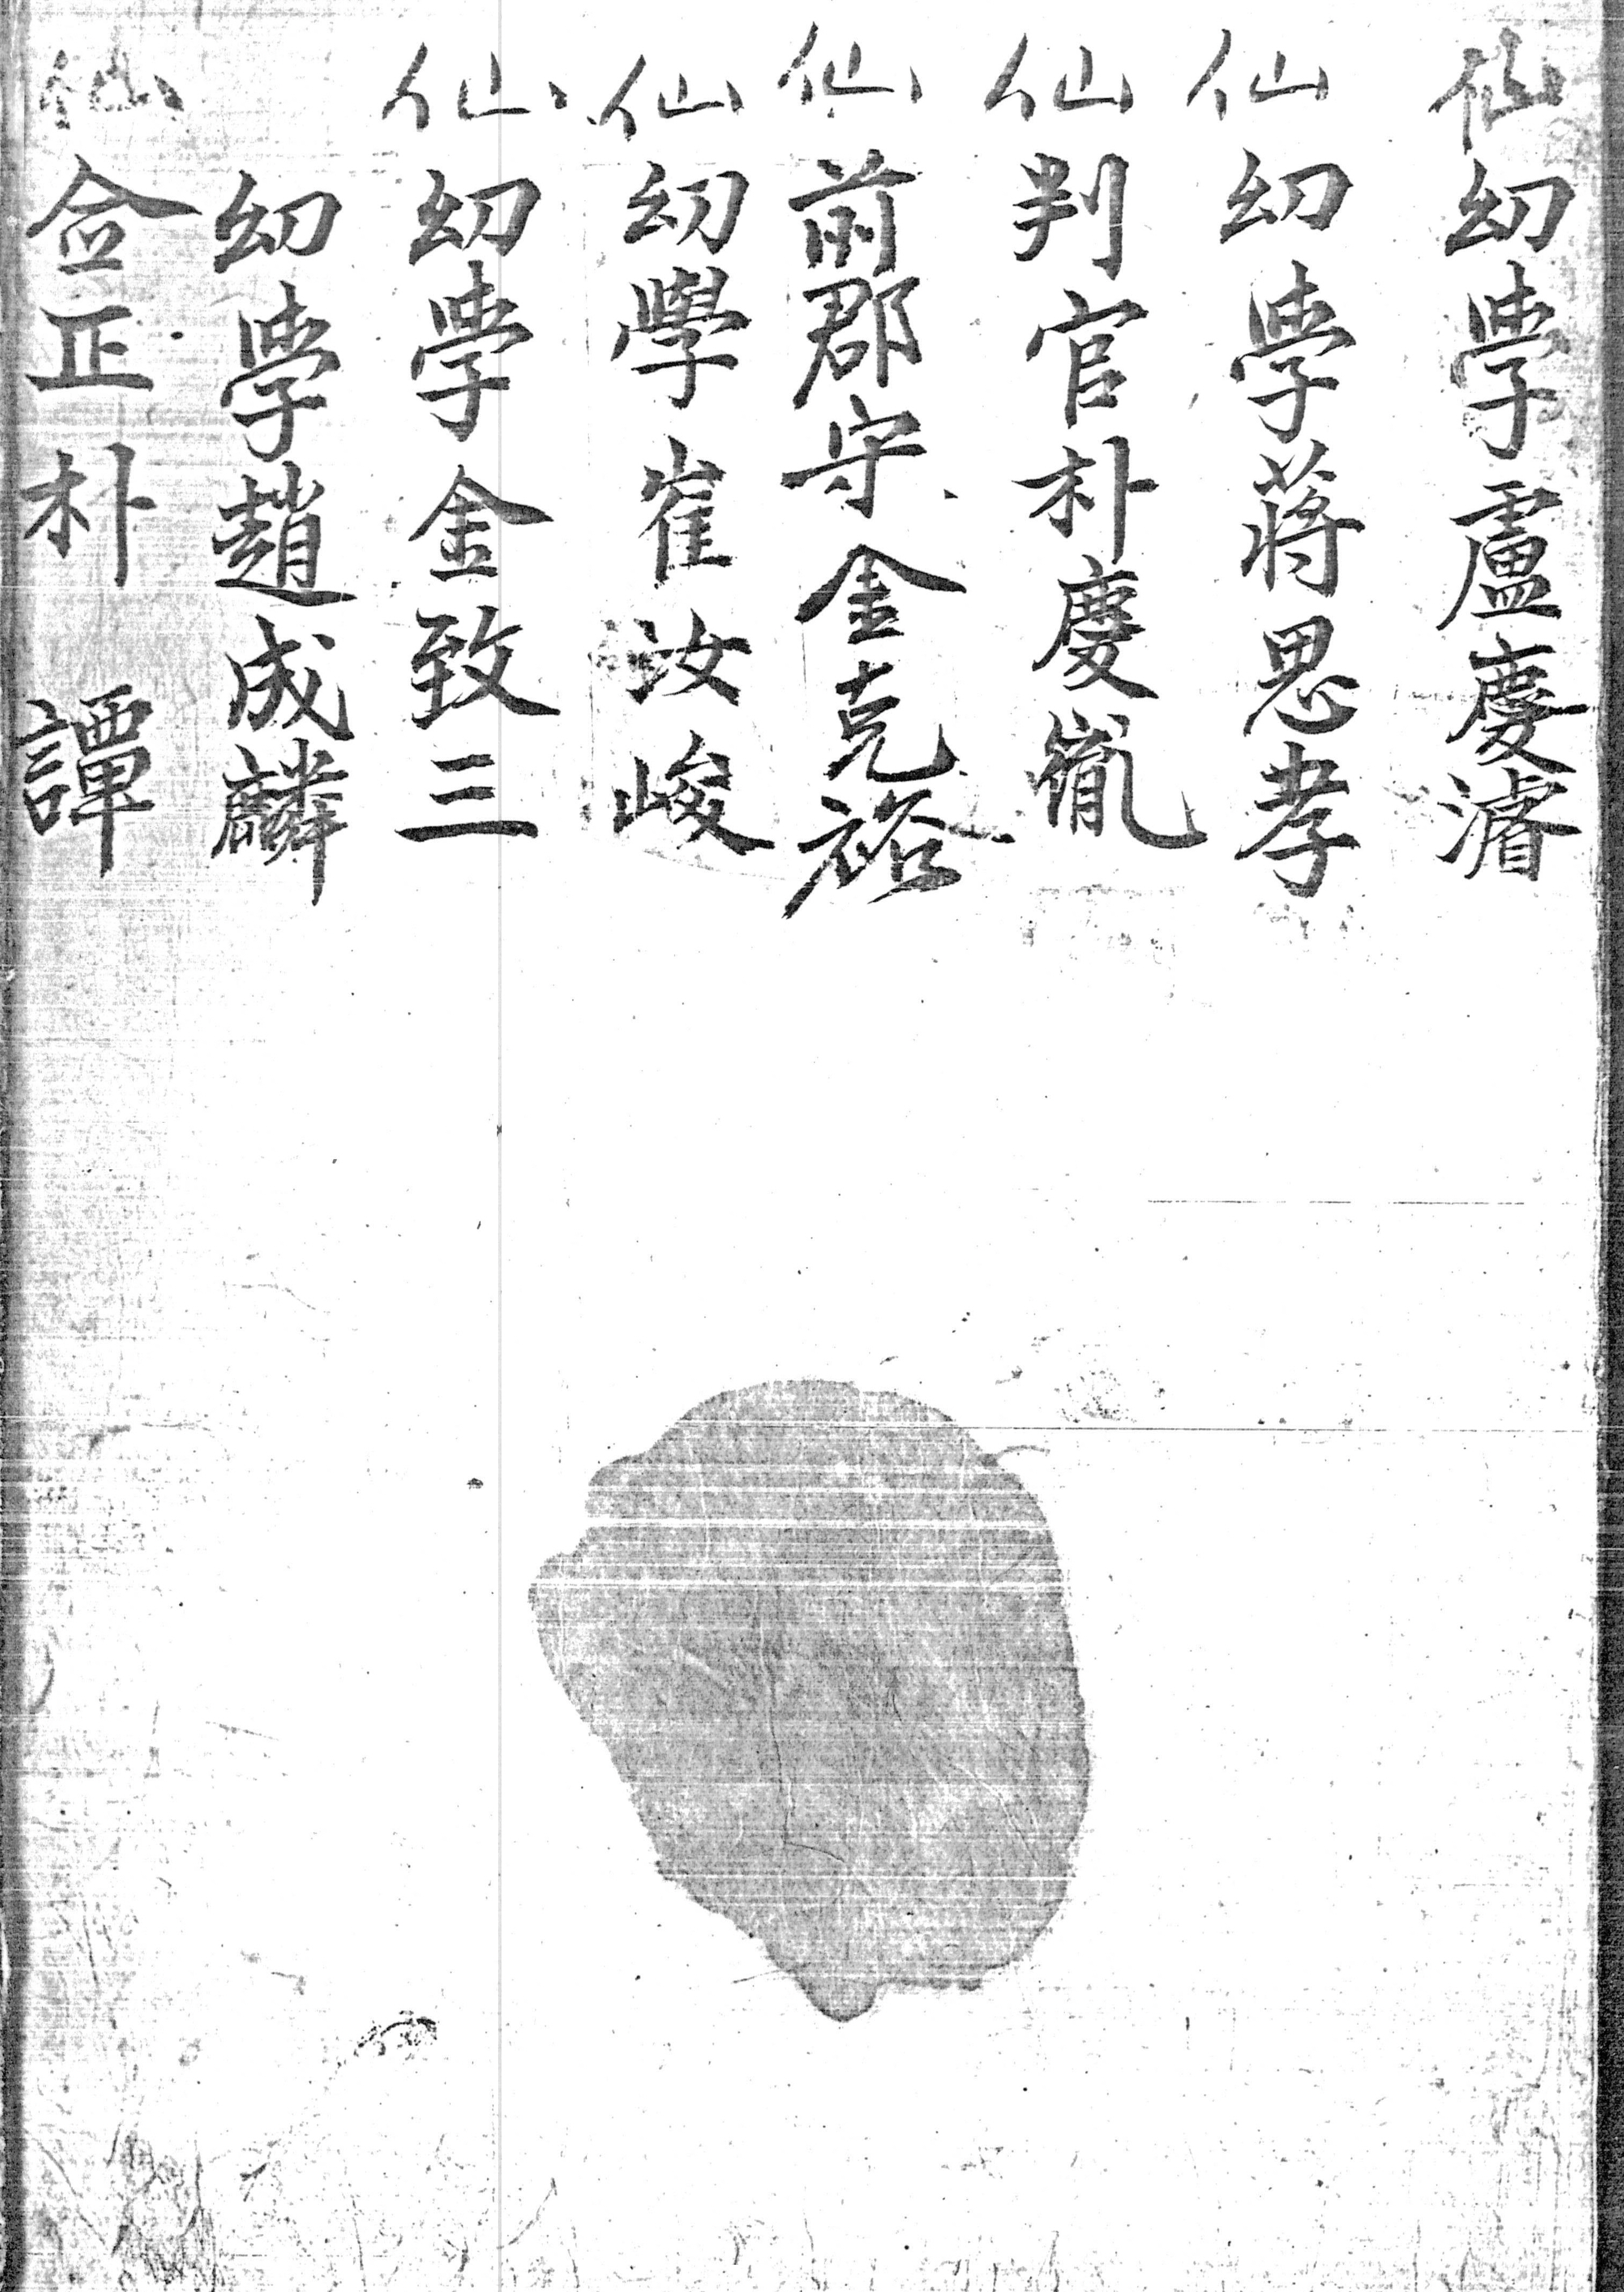 仙 幼學盧慶濬
仙 幼學蔣思孝
仙 判官朴慶胤
仙 前郡守金克裕
仙 幼學崔汝峻
仙 幼學金致三
幼學趙成麟
仙 僉正朴譚